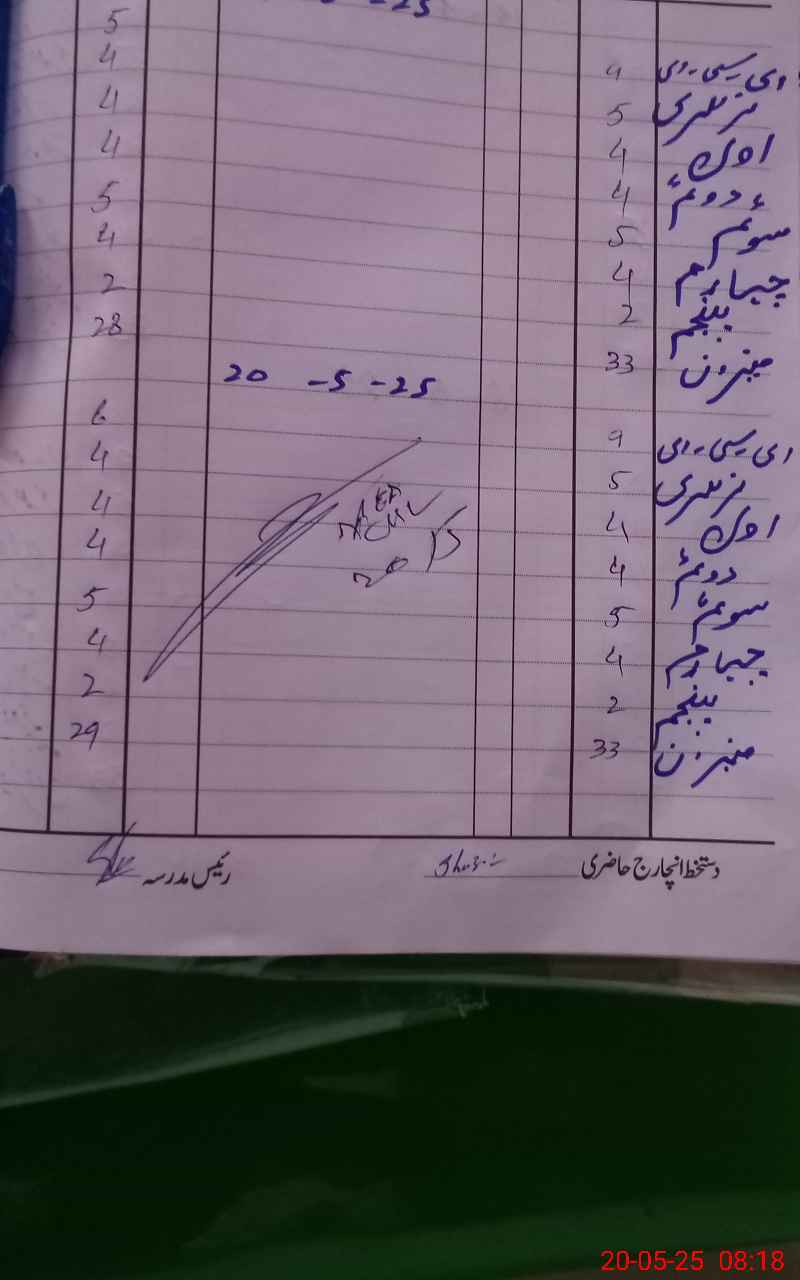 -25
5
ای سی ای 9 4
نرسری 5 4
اول 4 4
دوئم 4 5
سوئم 5 4
چہارم 4 2
پنجم 2 28
میزان 33
20 -5 -25
ای سی ای 9 6
نرسری 5 4
اول 4 4
دوئم 4 4
سوئم 5 5
چہارم 4 4
پنجم 2 2
میزان 33 29
دستخط انچارج حاضری
رئیس مدرسہ
20-05-25 08:18